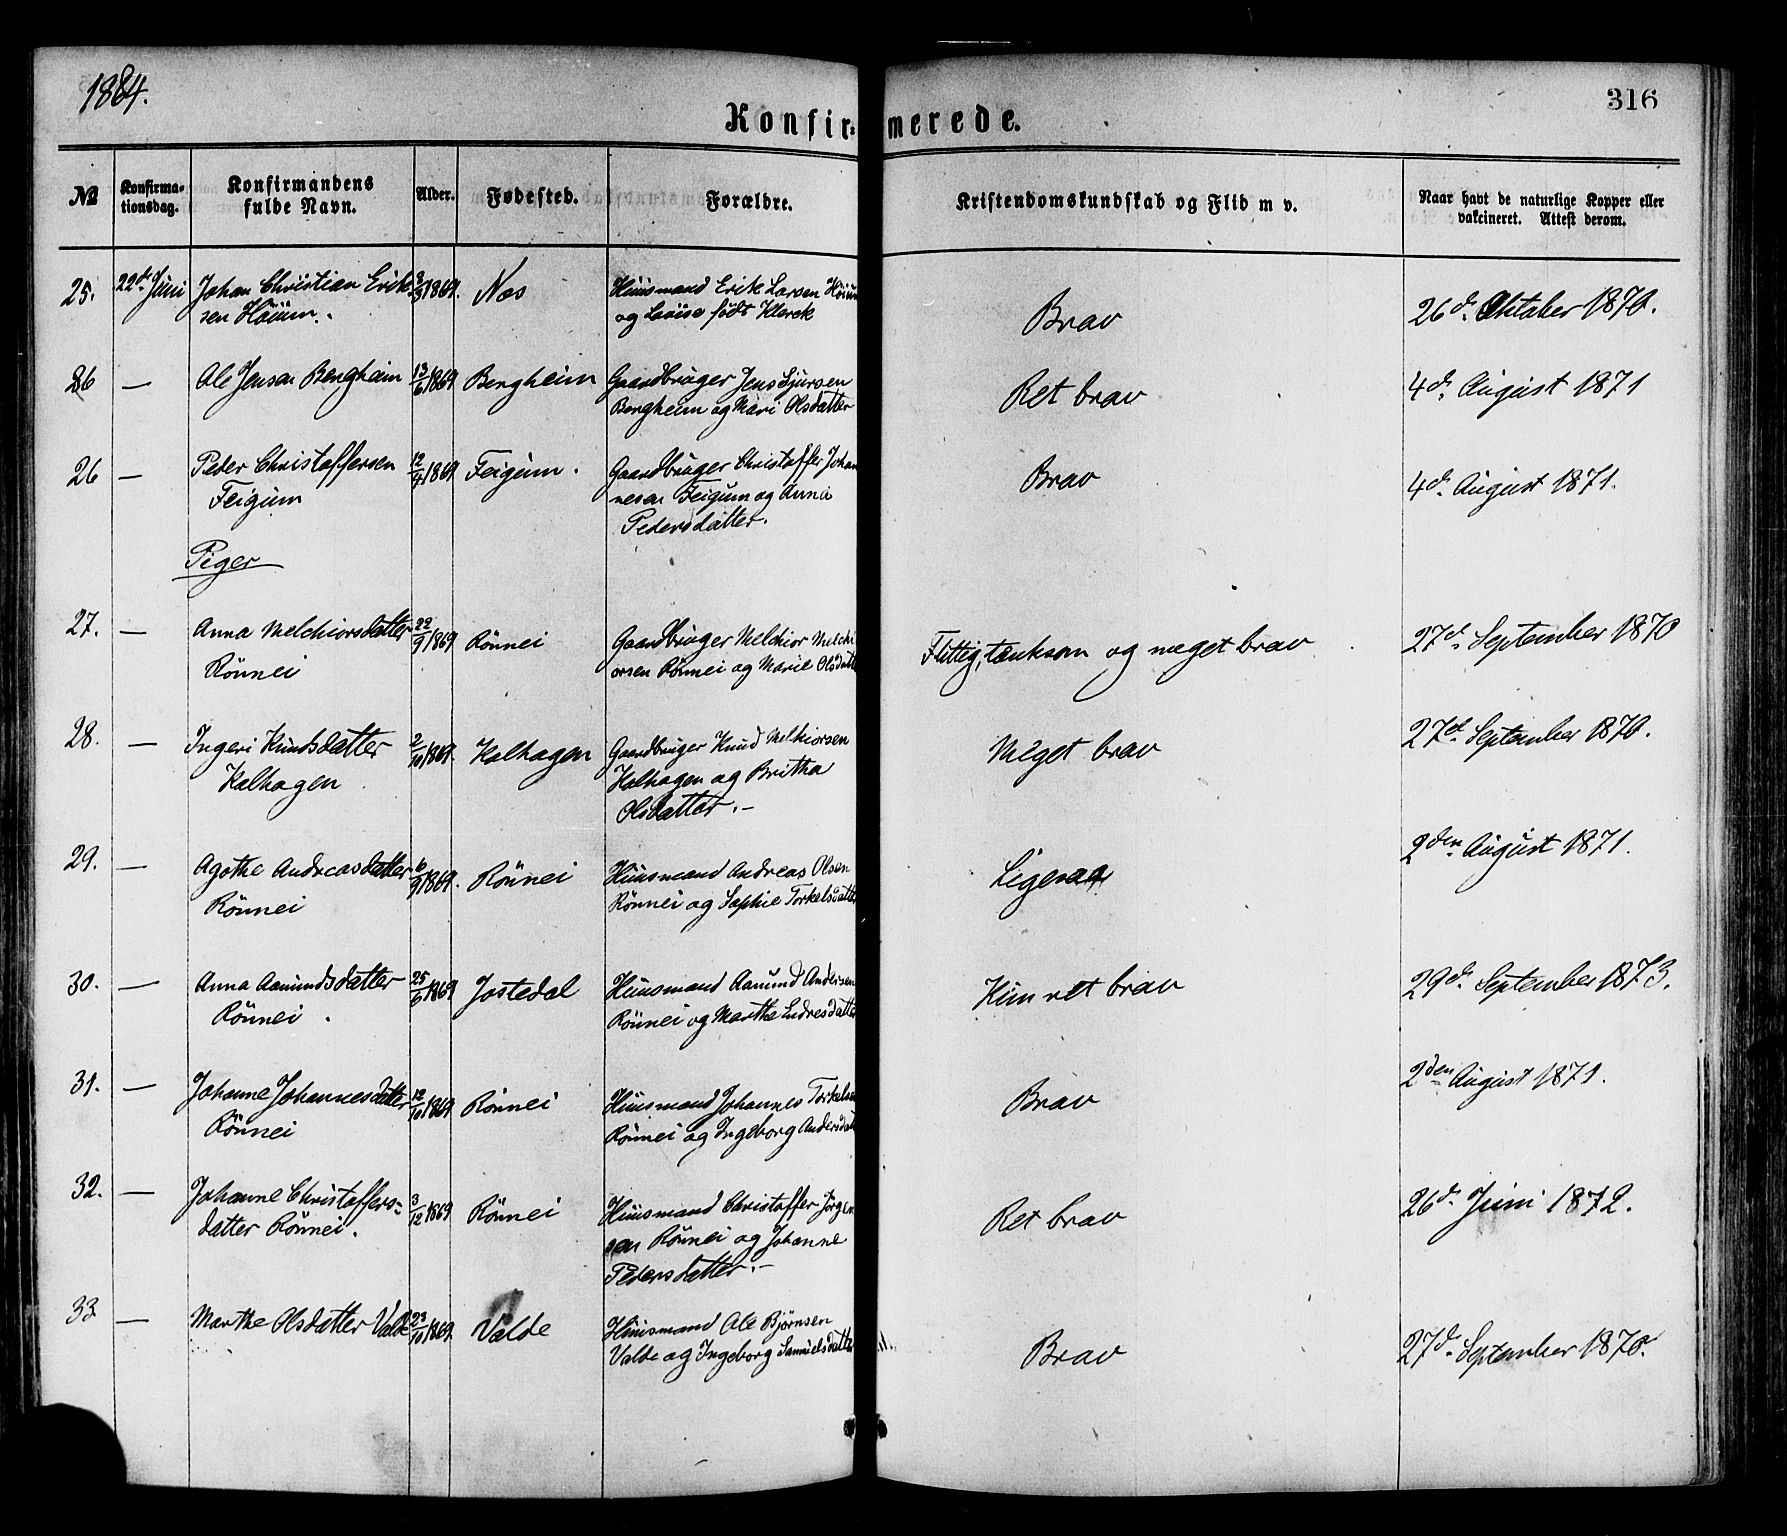 1884.
316
Konfirmerede.
№ Konfirma-tionsdag. Konfirmandens fulde Navn. Alder. Fødested. Forældre. Kristendomskundskab og Flid m v. Naar havt de naturlige Kopper eller vakcineret. Attest derom.
25. 22de Juni Johan Christian Erik- 1869. Næs Huusmand Erik Larsen Höium Brav 26de Oktober 1870.
sen Höium. og Lovise født Klerck
26 — Ole Jensen Bergheim 13/6 1869 Bergheim Gaardbruger Jens Sjursen Ret brav 4de August 1871
Bergheim og Mari Olsdatter
26 — Peder Christoffersen 12/7 1869 Feigum. Gaardbruger Christoffer Johan Brav 4de August 1871.
Feigum nesen Feigum og Anna
Pedersdatter.
Piger
27. — Anna Melchiorsdatter 22/9 1869 Rönnei Gaardbruger Melchior Melchi Flittig, tænksom og meget brav 27de September 1870
Rönnei orsen Rönnei og Marie Olsdatter
28. — Ingeri Knudsdatter 2/10 1869. Kalhagen Gaardbruger Knud Melkiorsen Meget brav 27de September 1870.
Kalhagen Kalhagen og Britha
Olsdatter.-
29. — Agothe Andreasdatter 6/9 1869. Rönnei Huusmand Andreas Olsen Ligesaa 2den August 1871.
Rönnei Rönnei og Sophie Torkelsdatter
30. — Anna Aamundsdatter 25/6 1869 Jostedal Huusmand Aamund Andersen Kun ret brav 29de September 1873.
Rönnei. Rönnei og Marthe Endresdatter
31. — Johanne Johannesdatter 12/10 1869 Rönnei Huusmand Johannes Torkelsen Brav 2den August 1871.
Rönnei Rönnei og Ingeborg Andersdat
32. — Johanne Christoffers- 3/12 1869 Rönnei Huusmand Christoffer Jörgen Ret brav 26de Juni 1872.
datter Rönnei. sen Rönnei og Johanne
Pedersdatter.-
33 — Marthe Olsdatter Valde 23/10 1869. Valde Huusmand Ole Bjørnsen Brav 27de September 1870.
Valde og Ingeborg Samuelsdatter